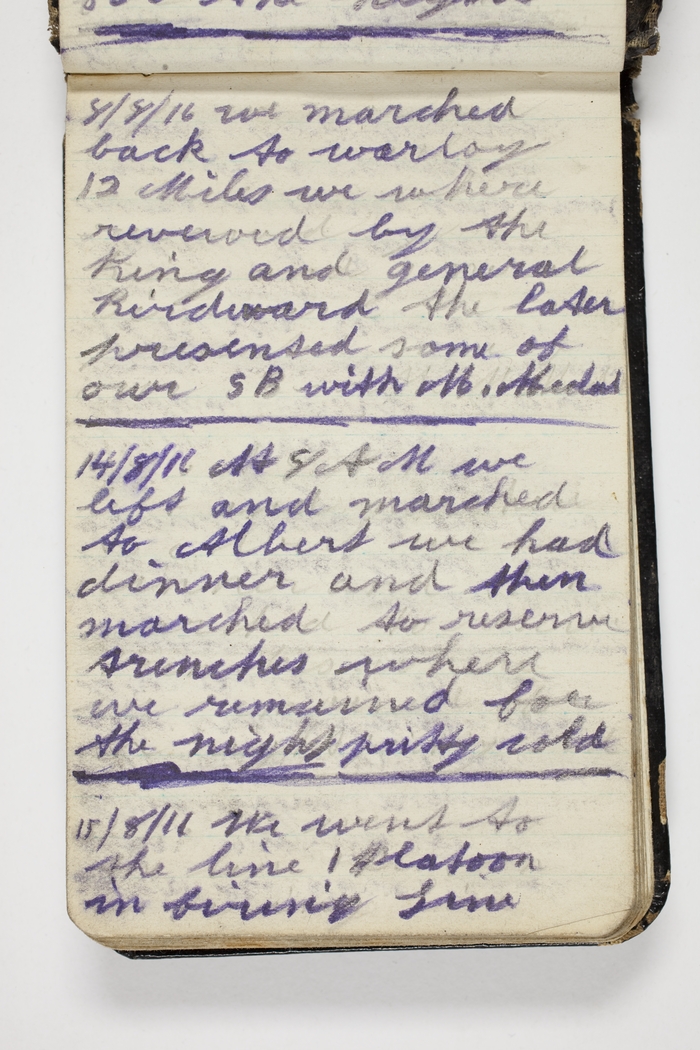 8/8/16 we marched
back to warloy
12 Miles we where
reveiwed by the
King and general
Birdwward the later
presented some of
our SB with M. Medal
14/8/16 At 8 AM we
left and marched
to Albert we had
dinner and then
marched to reserve
trenches where
we remained for
the night pritty cold
15/8/16 We went to
the line 1 Platoon
in firing Line